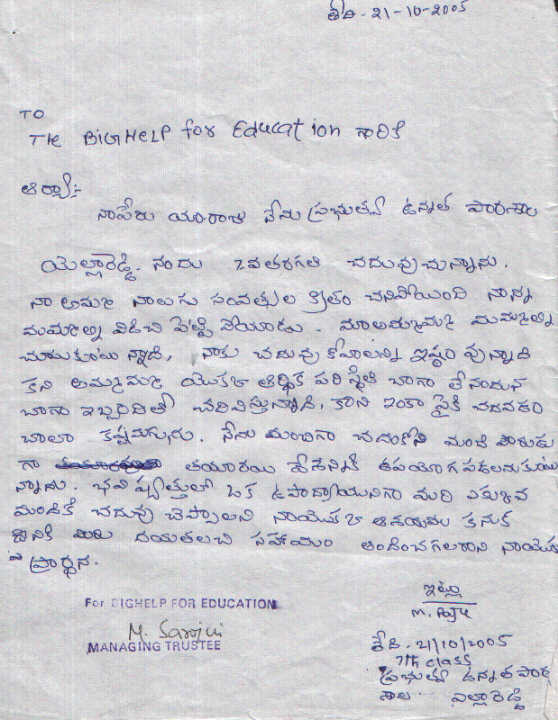 తేది - 21-10-2005
TO
THE BIGHELP for Education గారికి
ఆర్యా:-
నాపేరు యంరాజు నేను ప్రభుత్వ ఉన్నత పాఠశాల
యెల్లారెడ్డి. నందు 7వతరగతి చదువుచున్నాను.
నా అమ్మ నాలుగు సంవత్సుల క్రితం చనిపోయింది నాన్న
మమ్మల్ని విడిచి పెట్టి పోయాడు. మాఅమ్మమ్మ మమ్మల్ని
చూచుకుంటు న్నాది, నాకు చదువు కోవాలని ఇష్టం వున్నాది
కని అమ్మమ్మ యొకత ఆర్థిక పరిస్థితి బాగా లేనందున
బాగా ఇబ్బందితో చదివిస్తున్నాది, కాని ఇంకా పైకి చదవడం
చాలా కష్టమగ్గురు. నేను మంచిగా చదుకోని మంచి పౌరుడు
గా తయారయి దేశానికి ఉపయోగపడలనుకుయి
న్నాను. భవిష్యత్తులో ఒక ఉపాద్యాయునిగా మరి ఎక్కువ
మందికి చదువు చెప్పాలని నాయొక్క ఆశయము కనుక
దానికి మీరు దయతలచి సహాయం అందించగలరాని నాయొక్క
ప్రార్థన.
For BIGHELP FOR EDUCATION
M. Sarojini
MANAGING TRUSTEE
ఇట్లు
M. Raju
తేది. 21/10/2005
7th class
ప్రభుత్వ ఉన్నత పాఠ
శాల ఎల్లారెడ్డి